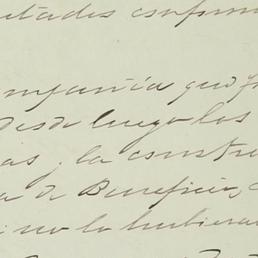 conform
compañía que
desde luego los
as, la constru
a de Beneficio,
i no lo hubiera